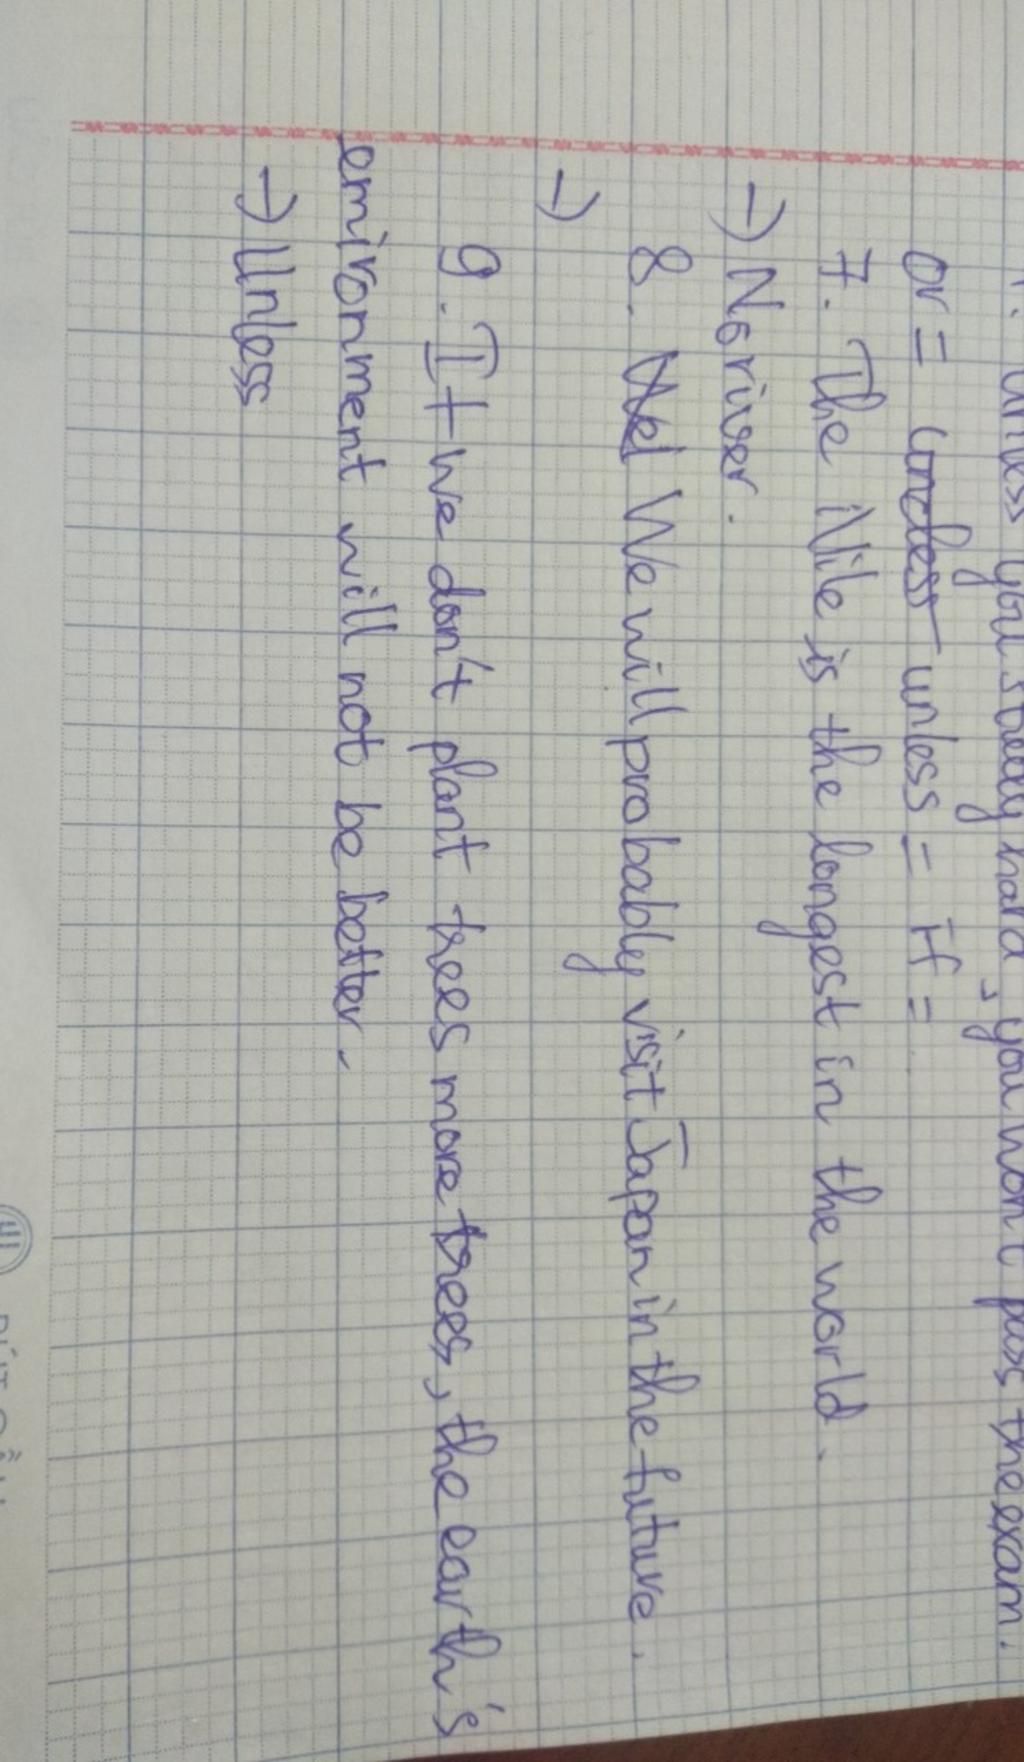 unless you study hard, you won't pass the exam.
or = unless = if =
7. The Nile is the longest in the world.
→ No river.
8. We will probably visit Japan in the future.
→
9. If we don't plant trees more trees, the earth's
environment will not be better.
→ Unless